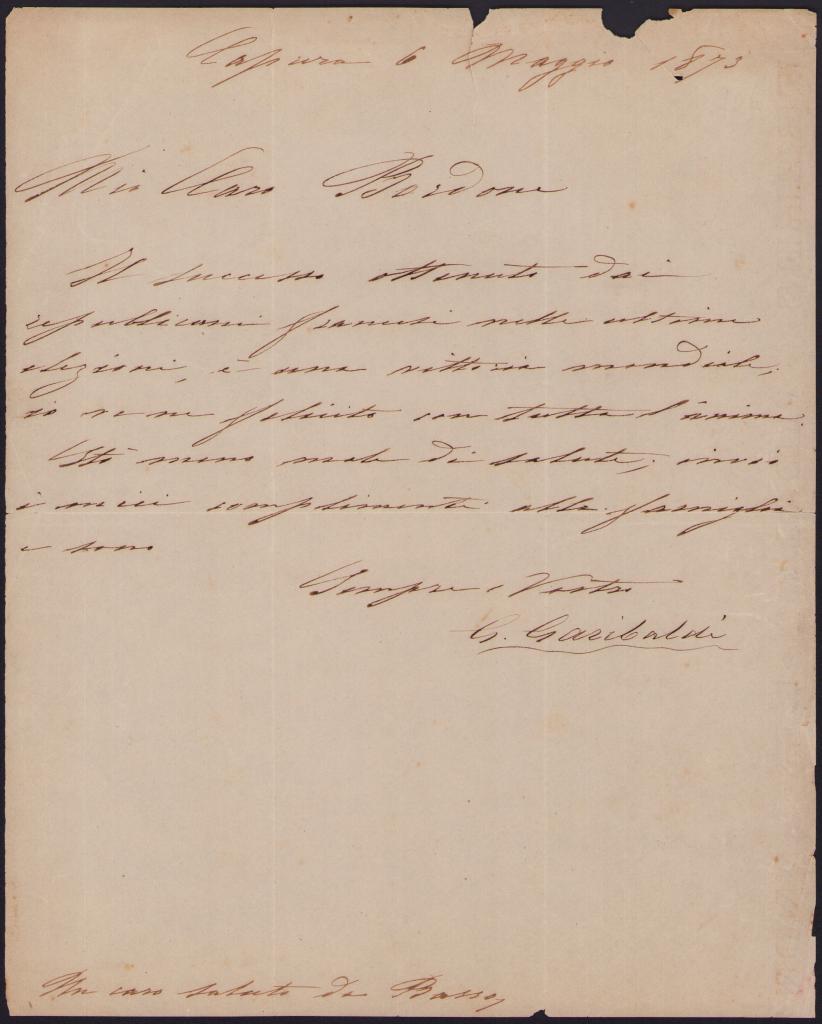 Caprera 6 Maggio 1873
Mio Caro Bordone
Il successo ottenuto dai
republicani francesi nelle ultime
elezioni, è una vittoria mondiale;
io ve ne felicito con tutta l'anima.
Stò meno male di salute; invio
i miei complimenti alla famiglia
e sono
Sempre Vostro
G. Garibaldi
Un caro saluto da Basso,